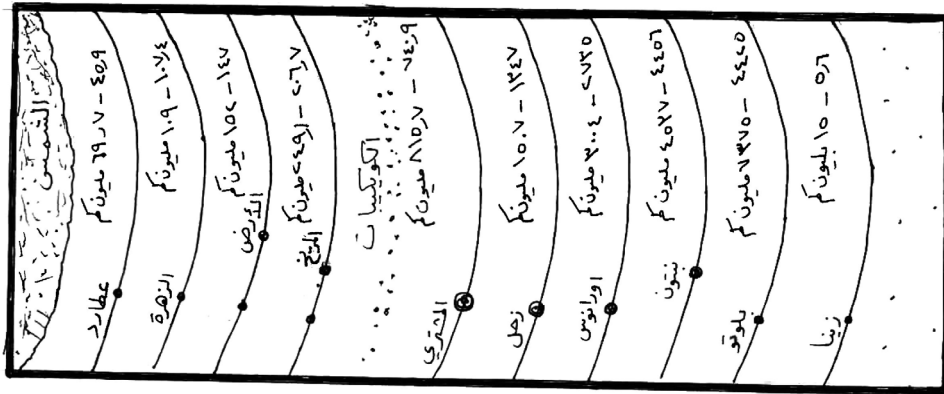 الشمس
عطارد
٤٥٫٩ – ٦٩٫٧ مليون كم
الزهرة
١٠٧٫٤ – ١٠٩ مليون كم
الأرض
١٤٧ – ١٥٢ مليون كم
المريخ
٢٠٦٫٧ – ٢٤٩٫١ مليون كم
الكويكبات
المشتري
٧٤٠٫٩ – ٨١٥٫٧ مليون كم
زحل
١٣٤٧ – ١٥٠٧ مليون كم
اورانوس
٢٧٣٥ – ٣٠٠٤ مليون كم
نبتون
٤٤٥٦ – ٤٥٣٧ مليون كم
بلوتو
٤٤٤٥ – ٧٣٧٥ مليون كم
زينا
٥٫٦ – ١٥ بليون كم